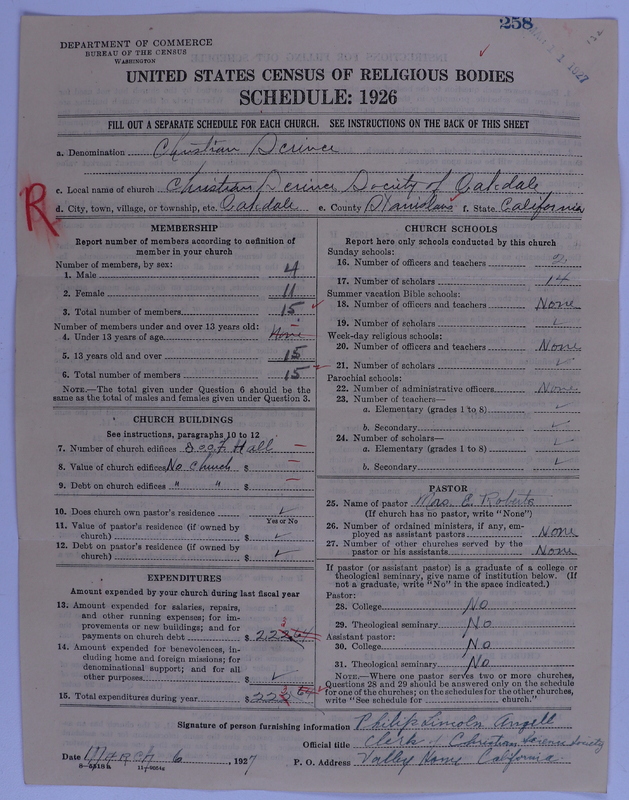 258
MAR 11 1927
DEPARTMENT OF COMMERCE
BUREAU OF THE CENSUS
WASHINGTON
UNITED STATES CENSUS OF RELIGIOUS BODIES
SCHEDULE: 1926
FILL OUT A SEPARATE SCHEDULE FOR EACH CHURCH. SEE INSTRUCTIONS ON THE BACK OF THIS SHEET
a. Denomination Christian Science
c. Local name of church Christian Science Society of Oakdale
R
d. City, town, village, or township, etc. Oakdale e. County Stanislaus f. State California
MEMBERSHIP
Report number of members according to definition of
member in your church
Number of members, by sex:
1. Male 4
2. Female 11
3. Total number of members 15 ✓
Number of members under and over 13 years old:
4. Under 13 years of age None
5. 13 years old and over 15
6. Total number of members 15 ✓
NOTE.—The total given under Question 6 should be the
same as the total of males and females given under Question 3.
CHURCH BUILDINGS
See instructions, paragraphs 10 to 12
7. Number of church edifices Hall —
8. Value of church edifices No Church $ —
9. Debt on church edifices " " $ —
10. Does church own pastor's residence ✓
Yes or No
11. Value of pastor's residence (if owned by
church) $ ✓
12. Debt on pastor's residence (if owned by
church) $ ✓
EXPENDITURES
Amount expended by your church during last fiscal year
13. Amount expended for salaries, repairs,
and other running expenses; for im-
provements or new buildings; and for
payments on church debt $
14. Amount expended for benevolences, in-
cluding home and foreign missions; for
denominational support; and for all
other purposes $ ✓
15. Total expenditures during year $
CHURCH SCHOOLS
Report here only schools conducted by this church
Sunday schools:
16. Number of officers and teachers 2
17. Number of scholars 14
Summer vacation Bible schools:
18. Number of officers and teachers None
19. Number of scholars ✓
Week-day religious schools:
20. Number of officers and teachers None
21. Number of scholars ✓
Parochial schools:
22. Number of administrative officers None
23. Number of teachers—
a. Elementary (grades 1 to 8) ✓
b. Secondary ✓
24. Number of scholars—
a. Elementary (grades 1 to 8) ✓
b. Secondary ✓
PASTOR
25. Name of pastor Mrs. E. Roberts
(If church has no pastor, write "None")
26. Number of ordained ministers, if any, em-
ployed as assistant pastors None
27. Number of other churches served by the
pastor or his assistants None
If pastor (or assistant pastor) is a graduate of a college or
theological seminary, give name of institution below. (If
not a graduate, write "No" in the space indicated.)
Pastor:
28. College No
29. Theological seminary No
Assistant pastor:
30. College No
31. Theological seminary No
NOTE.—Where one pastor serves two or more churches,
Questions 28 and 29 should be answered only on the schedule
for one of the churches; on the schedules for the other churches,
write "See schedule for church."
Signature of person furnishing information Philip Lincoln Angell
Official title Clerk of Christian Science Society
Date March 6, 1927 P. O. Address Valley Home California.